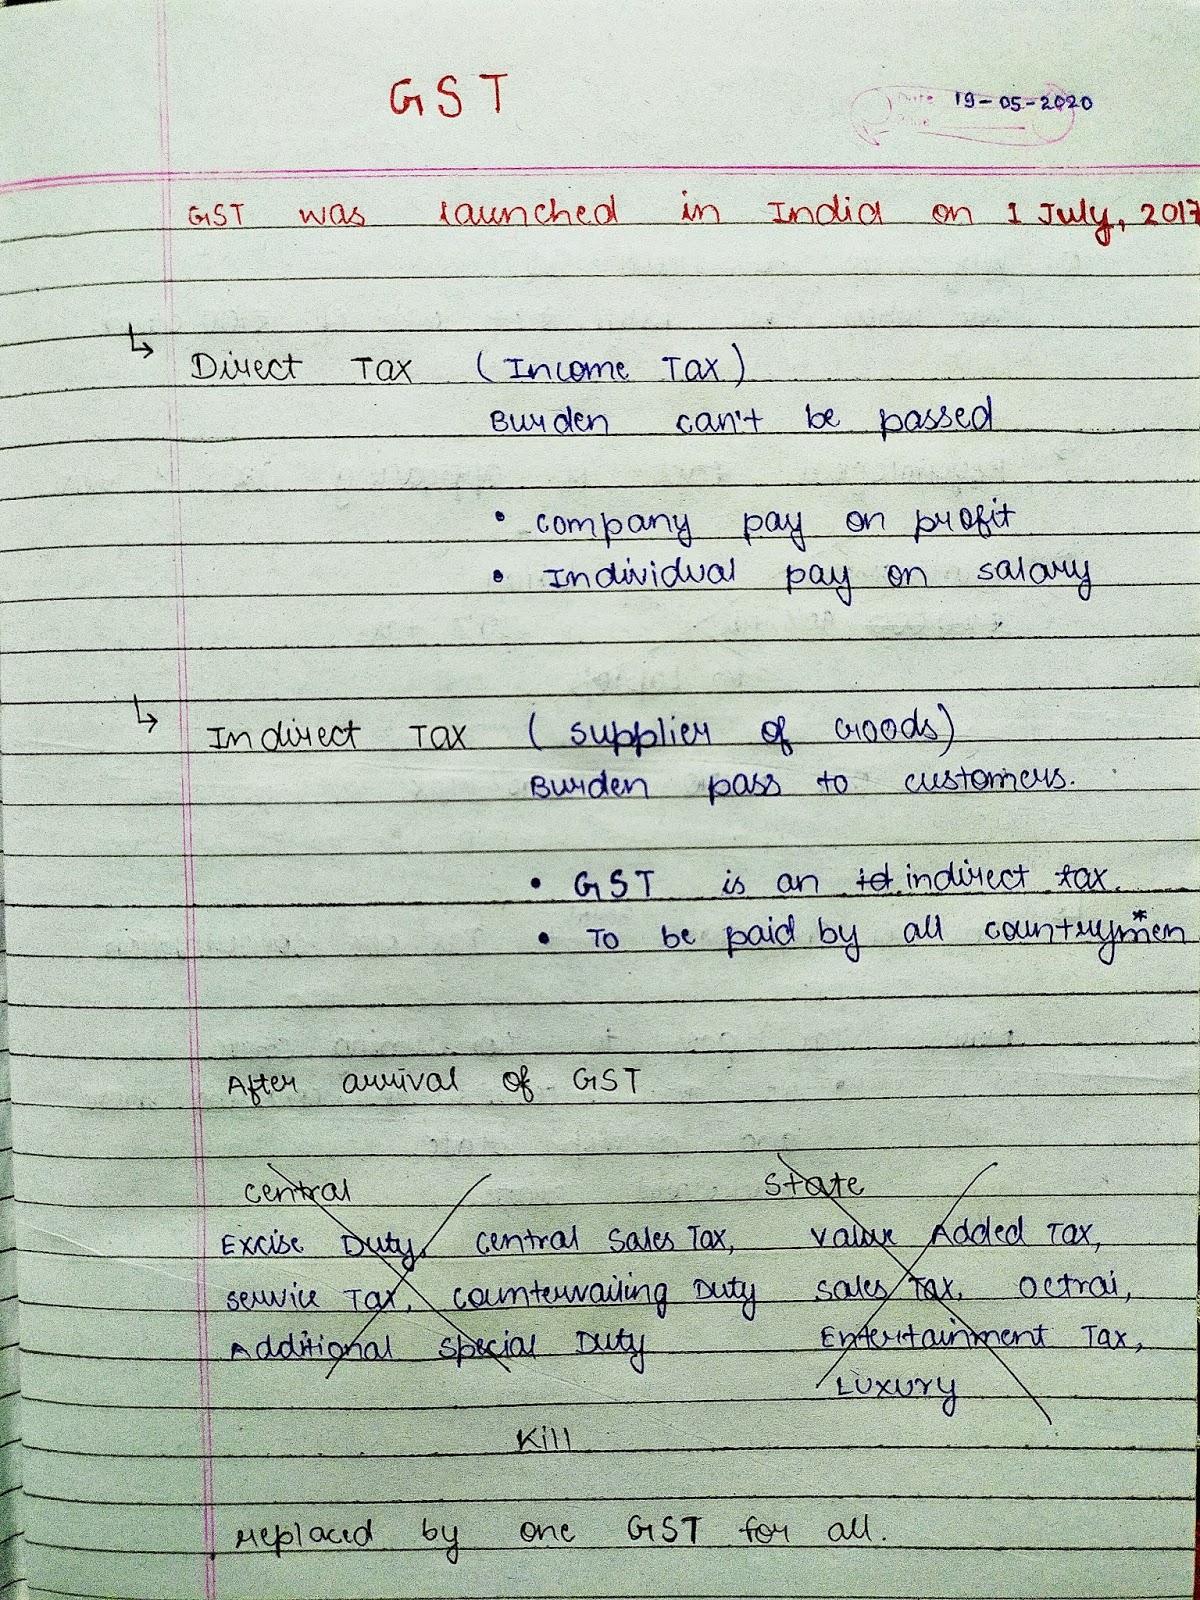 GST
Date 19-05-2020
GST was launched in India on 1 July, 2017
↳ Direct Tax (Income Tax)
Burden can't be passed
• company pay on profit
• Individual pay on salary
↳ Indirect Tax (supplier of Goods)
Burden pass to customers.
• GST is an id indirect tax.
• To be paid by all countrymen*
After arrival of GST
Central State
Excise Duty, Central Sales Tax, Value Added Tax,
Service Tax, Countervailing Duty Sales Tax, Octrai,
Additional Special Duty Entertainment Tax,
Luxury
Kill
replaced by one GST for all.